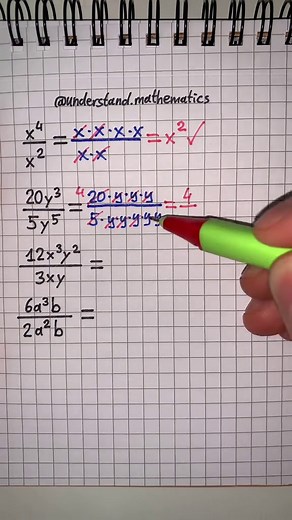 @understand.mathematics
x⁴/x² = x·x·x·x/x·x = x² ✓
20y³/5y⁵ = 4 20·y·y·y/5·y·y·y·y·y = 4/
12x³y²/3xy =
6a³b/2a²b =